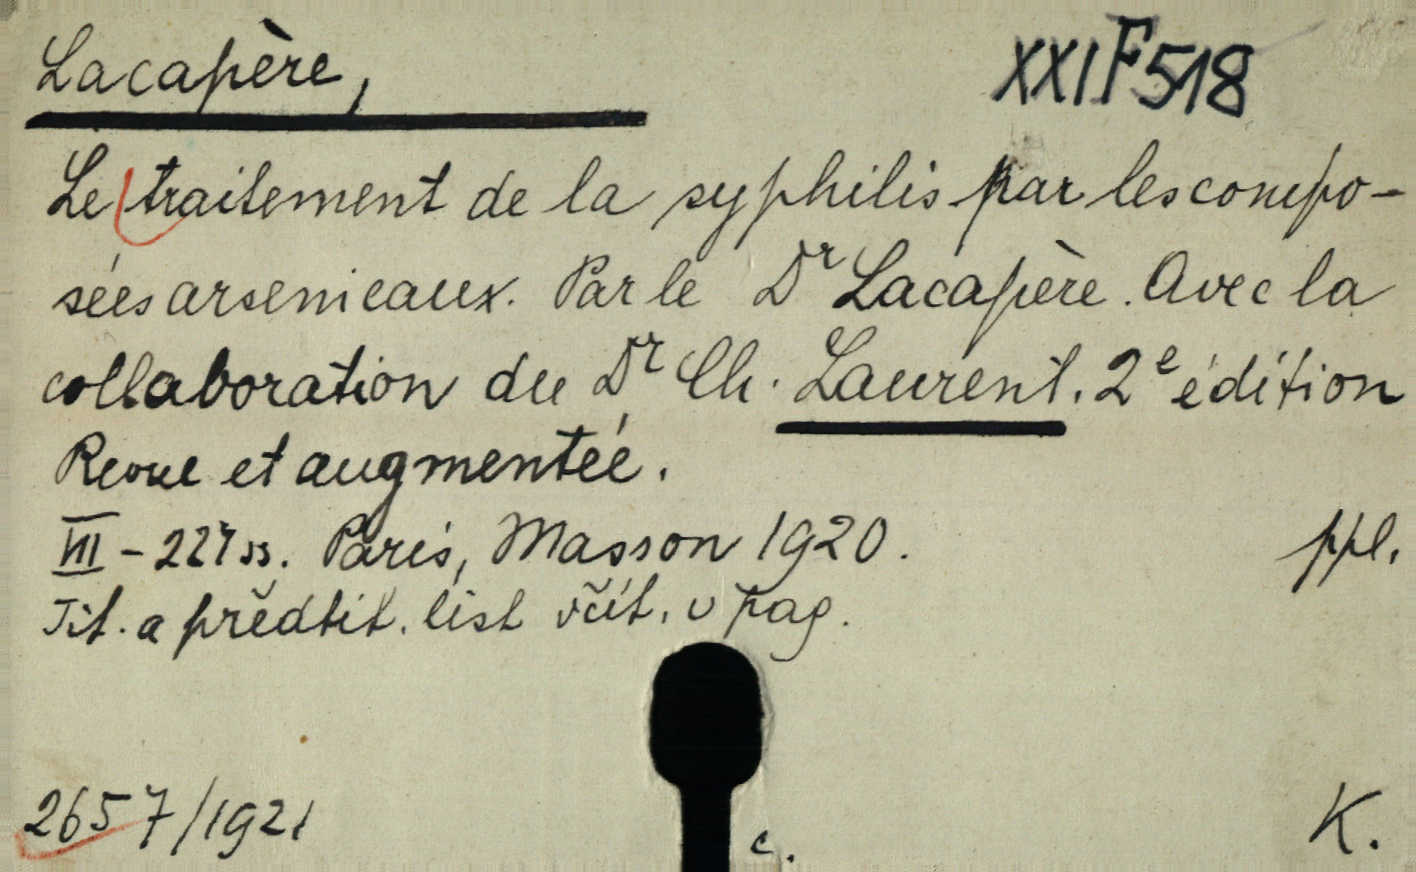 Lacapère,
XXI F 518
Le traitement de la syphilis par les compo-
sées arsenicaux. Par le Dr Lacapère. Avec la
collaboration du Dr Ch. Laurent. 2e édition
Revue et augmentée.
VIII - 227 ss. Paris, Masson 1920.
ppl.
Tit. a předtit. list včít. v pag.
2657/1921
c.
K.